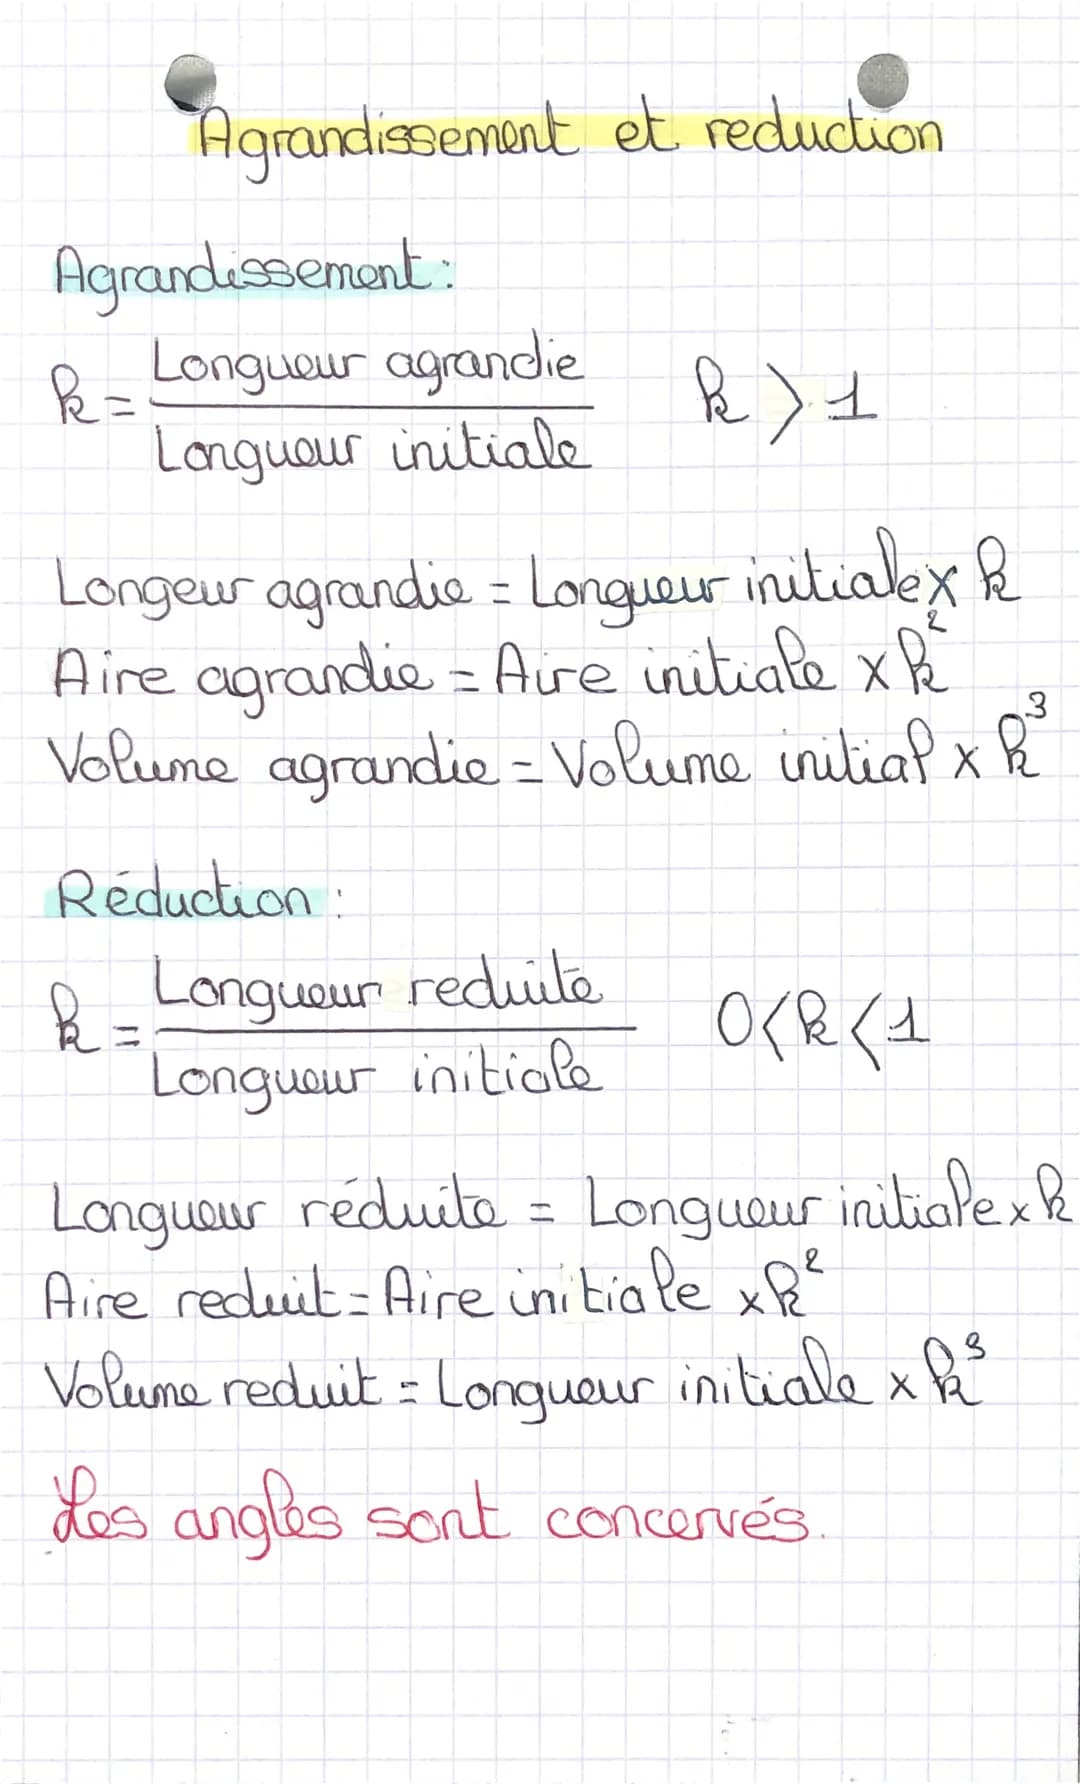 Agrandissement et reduction
Agrandissement :
k = Longueur agrandie
Longueur initiale
k > 1
Longeur agrandie = Longueur initiale x k
Aire agrandie = Aire initiale x k²
Volume agrandie = Volume initial x k³
Réduction :
k = Longueur reduite
Longueur initiale
0 < k < 1
Longueur réduite = Longueur initiale x k
Aire reduit = Aire initiale x k²
Volume reduit = Longueur initiale x k³
Les angles sont concervés.